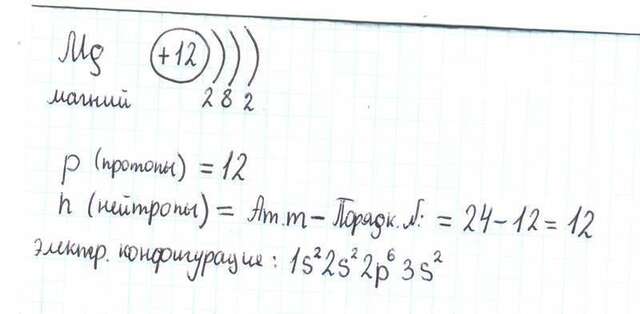 Mg +12
магний 2 8 2
p (протоны) = 12
n (нейтроны) = Ат.m – Порядк.№: = 24–12=12
электр. конфигурация: 1s²2s²2p⁶3s²